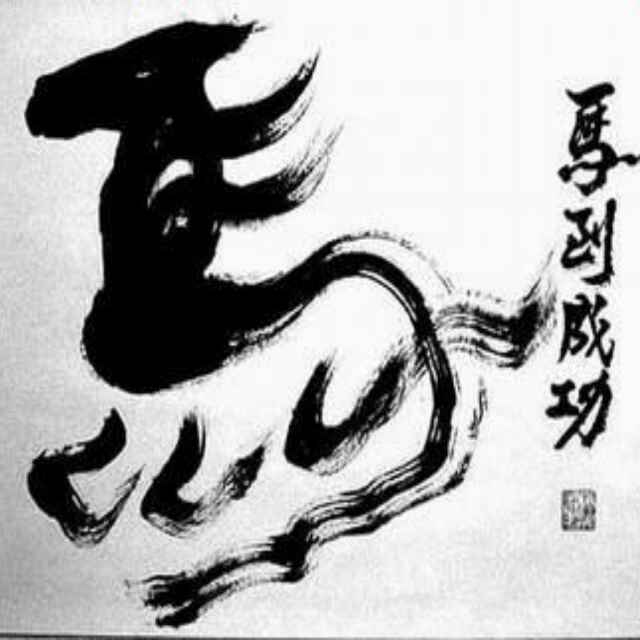 馬到成功
馬